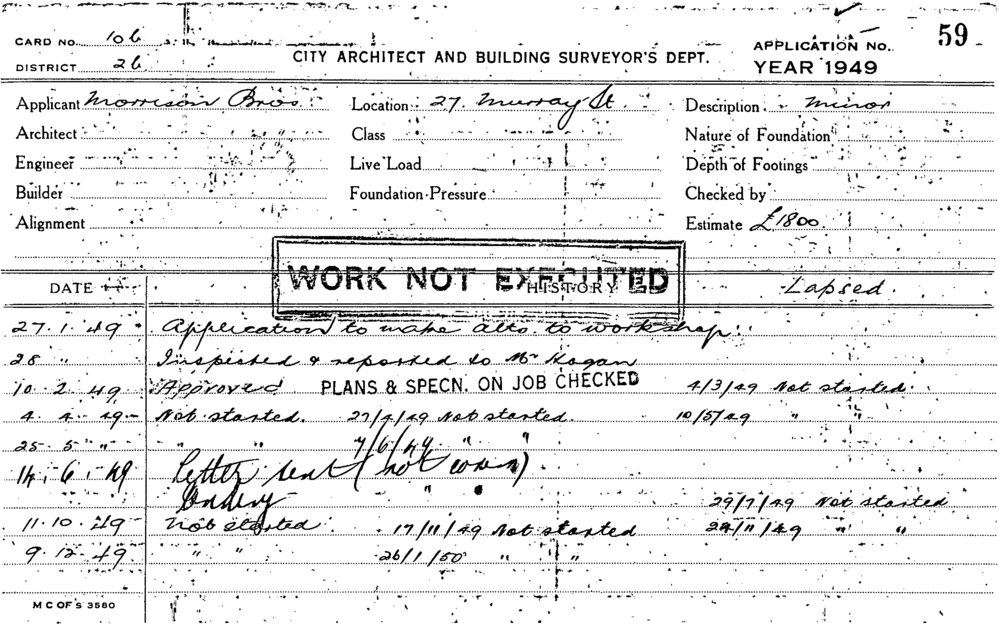 CARD No. 106
DISTRICT 26
CITY ARCHITECT AND BUILDING SURVEYOR'S DEPT.
APPLICATION No. 59
YEAR 1949
Applicant Morrison Bros. Location 27. Murray St. Description minor
Architect Class Nature of Foundation
Engineer Live Load Depth of Footings
Builder Foundation Pressure Checked by
Alignment Estimate £1800.
WORK NOT EXECUTED
DATE HISTORY Lapsed
27. 1. 49 Application to make alts. to workshop.
28 " Inspected & reported to Mr Hogan
10. 2. 49 Approved PLANS & SPECN. ON JOB CHECKED 4/3/49 Not started.
4. 4. 49 Not started. 27/4/49 Not started. 10/5/49 " "
25. 5 " " " 7/6/49 " "
14. 6. 49 Letter sent (not )
" 29/7/49 Not started
11. 10. 49 Not started 17/11/49 Not started 29/11/49 " "
9. 12. 49 " " 26/1/50 " "
M C OF S 3580